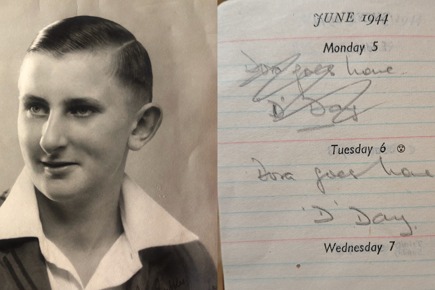 JUNE 1944
Monday 5
Dora goes home.
'D' Day
Tuesday 6
Dora goes home
'D' Day.
Wednesday 7